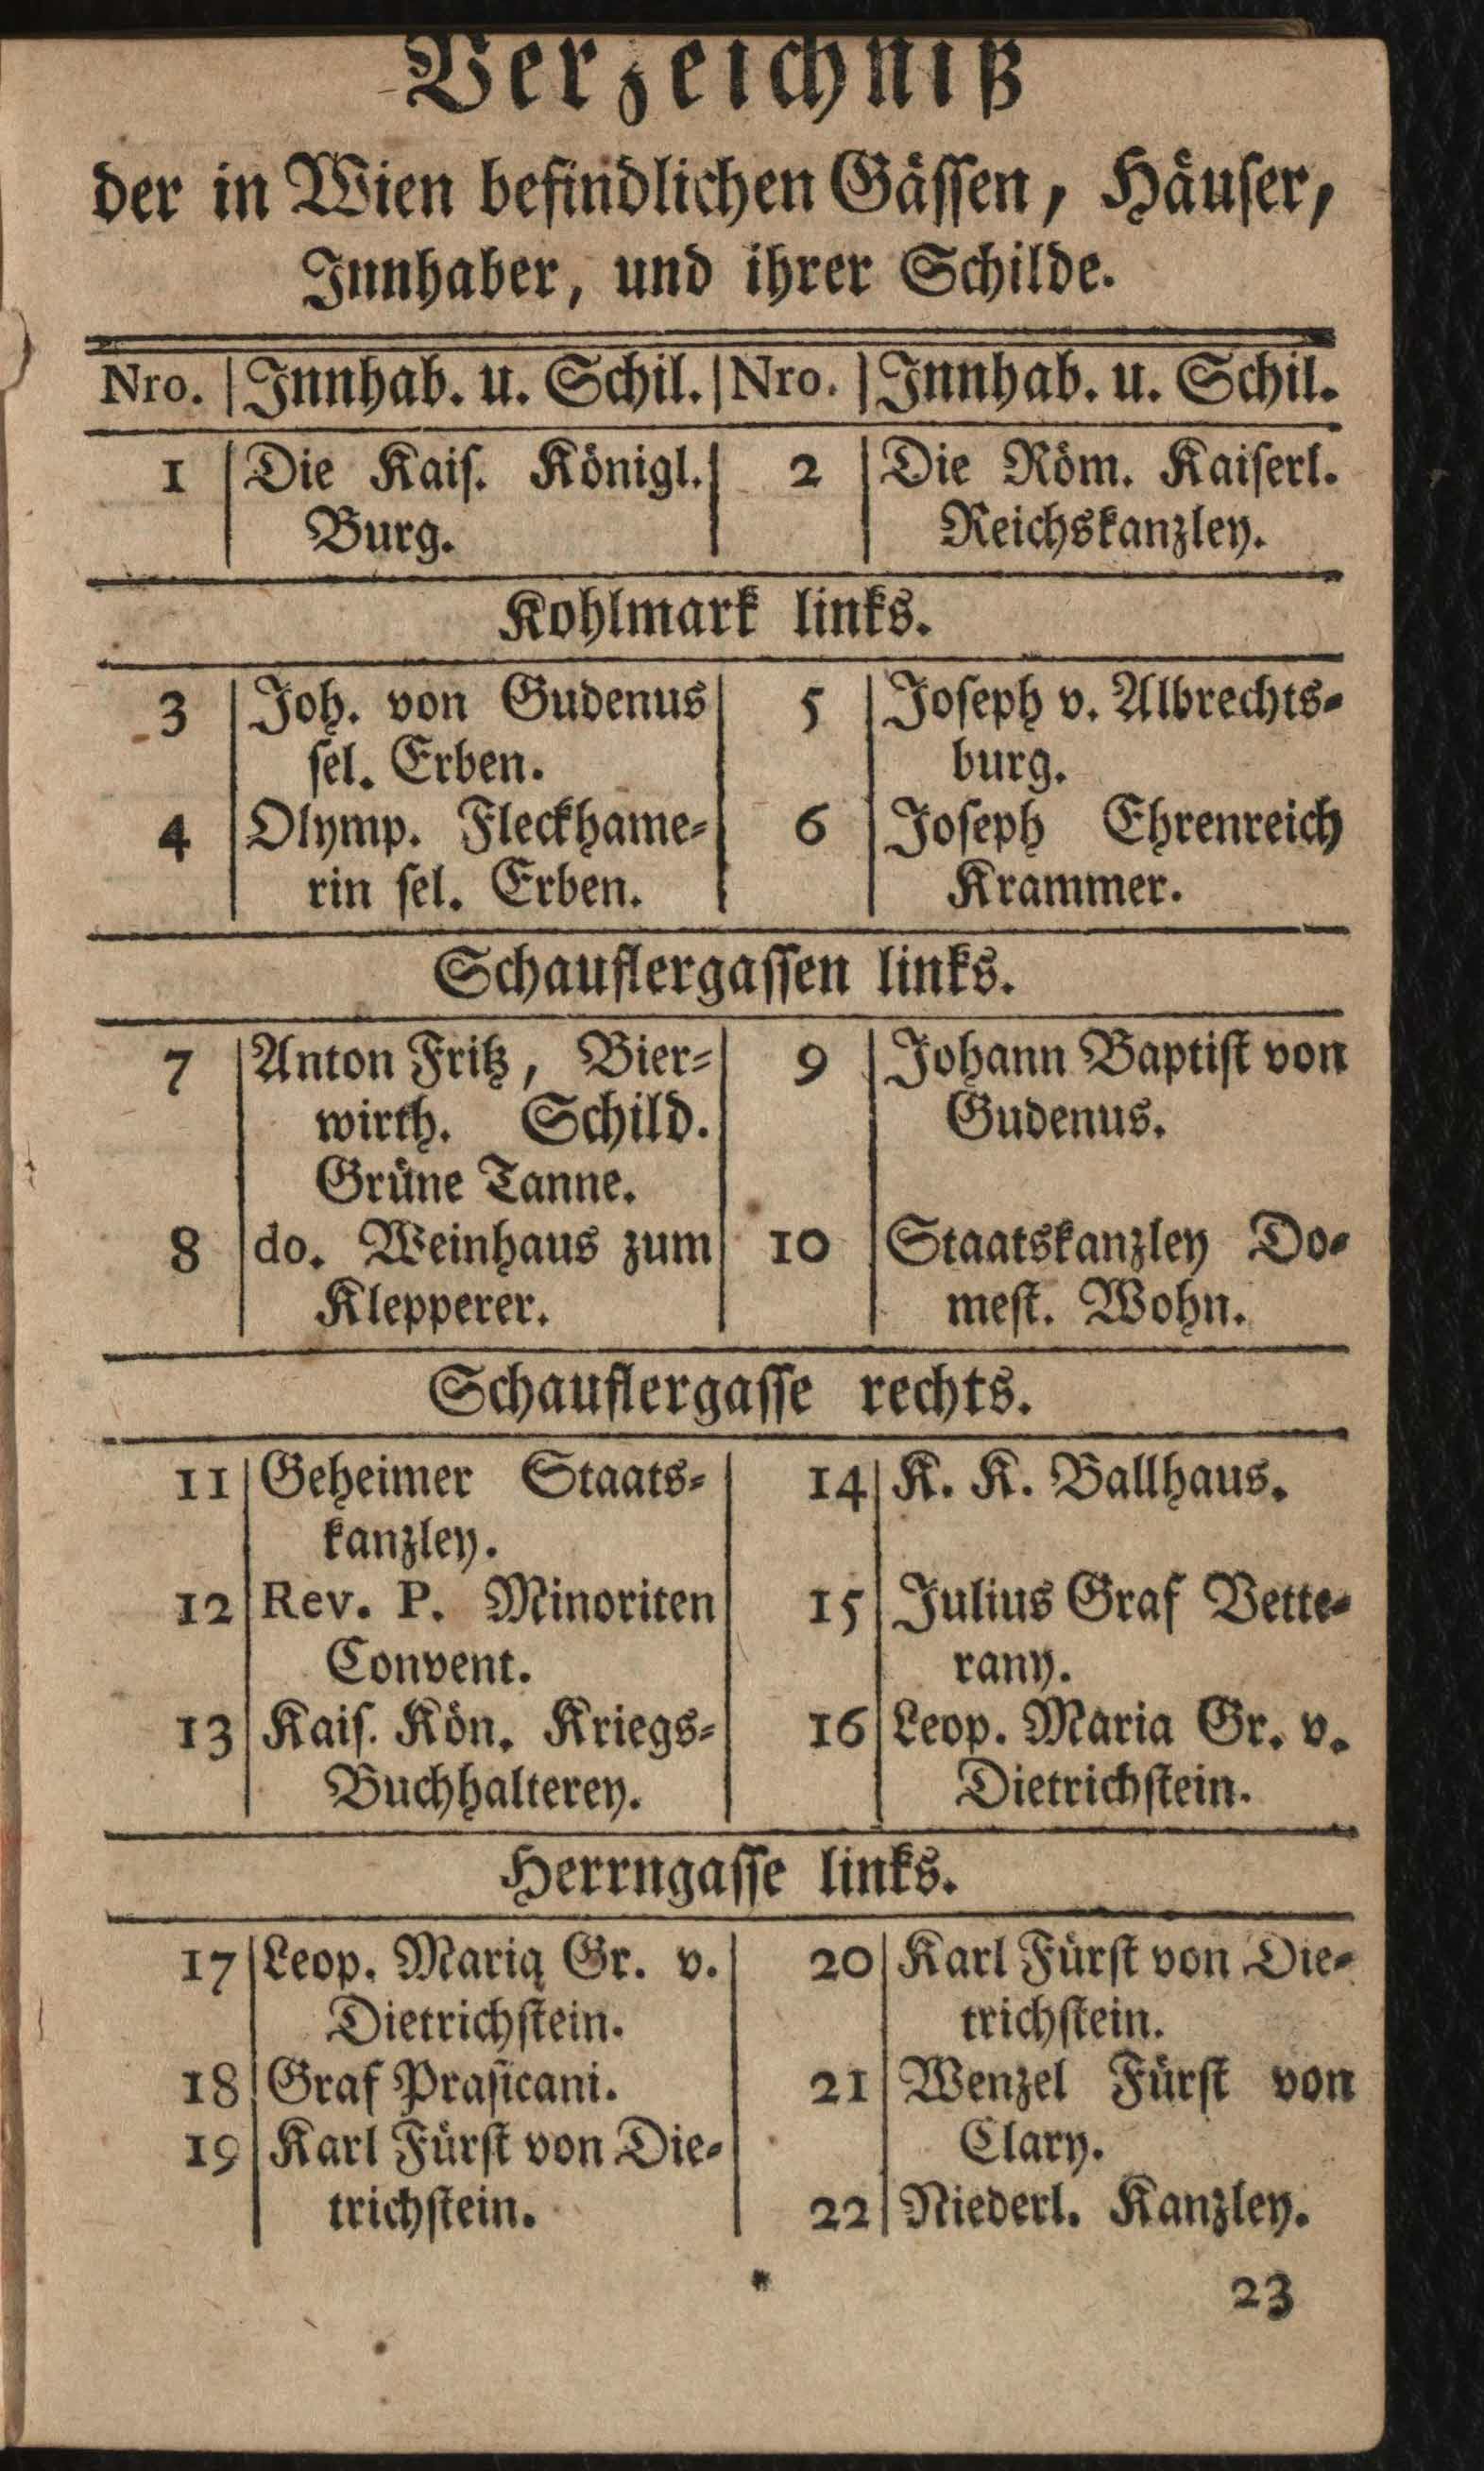 Verzeichniß
der in Wien befindlichen Gässen, Häuser,
Innhaber, und ihrer Schilde.
Nro. Innhab. u. Schil. Nro. Innhab. u. Schil.
1 Die Kais. Königl.
Burg.
2 Die Röm. Kaiserl.
Reichskanzley.
Kohlmark links.
3 Joh. von Gudenus
sel. Erben.
4 Olymp. Fleckhame-
rin sel. Erben.
5 Joseph v. Albrechts-
burg.
6 Joseph Ehrenreich
Krammer.
Schauflergassen links.
7 Anton Fritz, Bier-
wirth. Schild.
Grüne Tanne.
8 do. Weinhaus zum
Klepperer.
9 Johann Baptist von
Gudenus.
10 Staatskanzley Do-
mest. Wohn.
Schauflergasse rechts.
11 Geheimer Staats-
kanzley.
12 Rev. P. Minoriten
Convent.
13 Kais. Kön. Kriegs-
Buchhalterey.
14 K. K. Ballhaus.
15 Julius Graf Vette-
rany.
16 Leop. Maria Gr. v.
Dietrichstein.
Herrngasse links.
17 Leop. Maria Gr. v.
Dietrichstein.
18 Graf Prasicani.
19 Karl Fürst von Die-
trichstein.
20 Karl Fürst von Die-
trichstein.
21 Wenzel Fürst von
Clary.
22 Niederl. Kanzley.
23